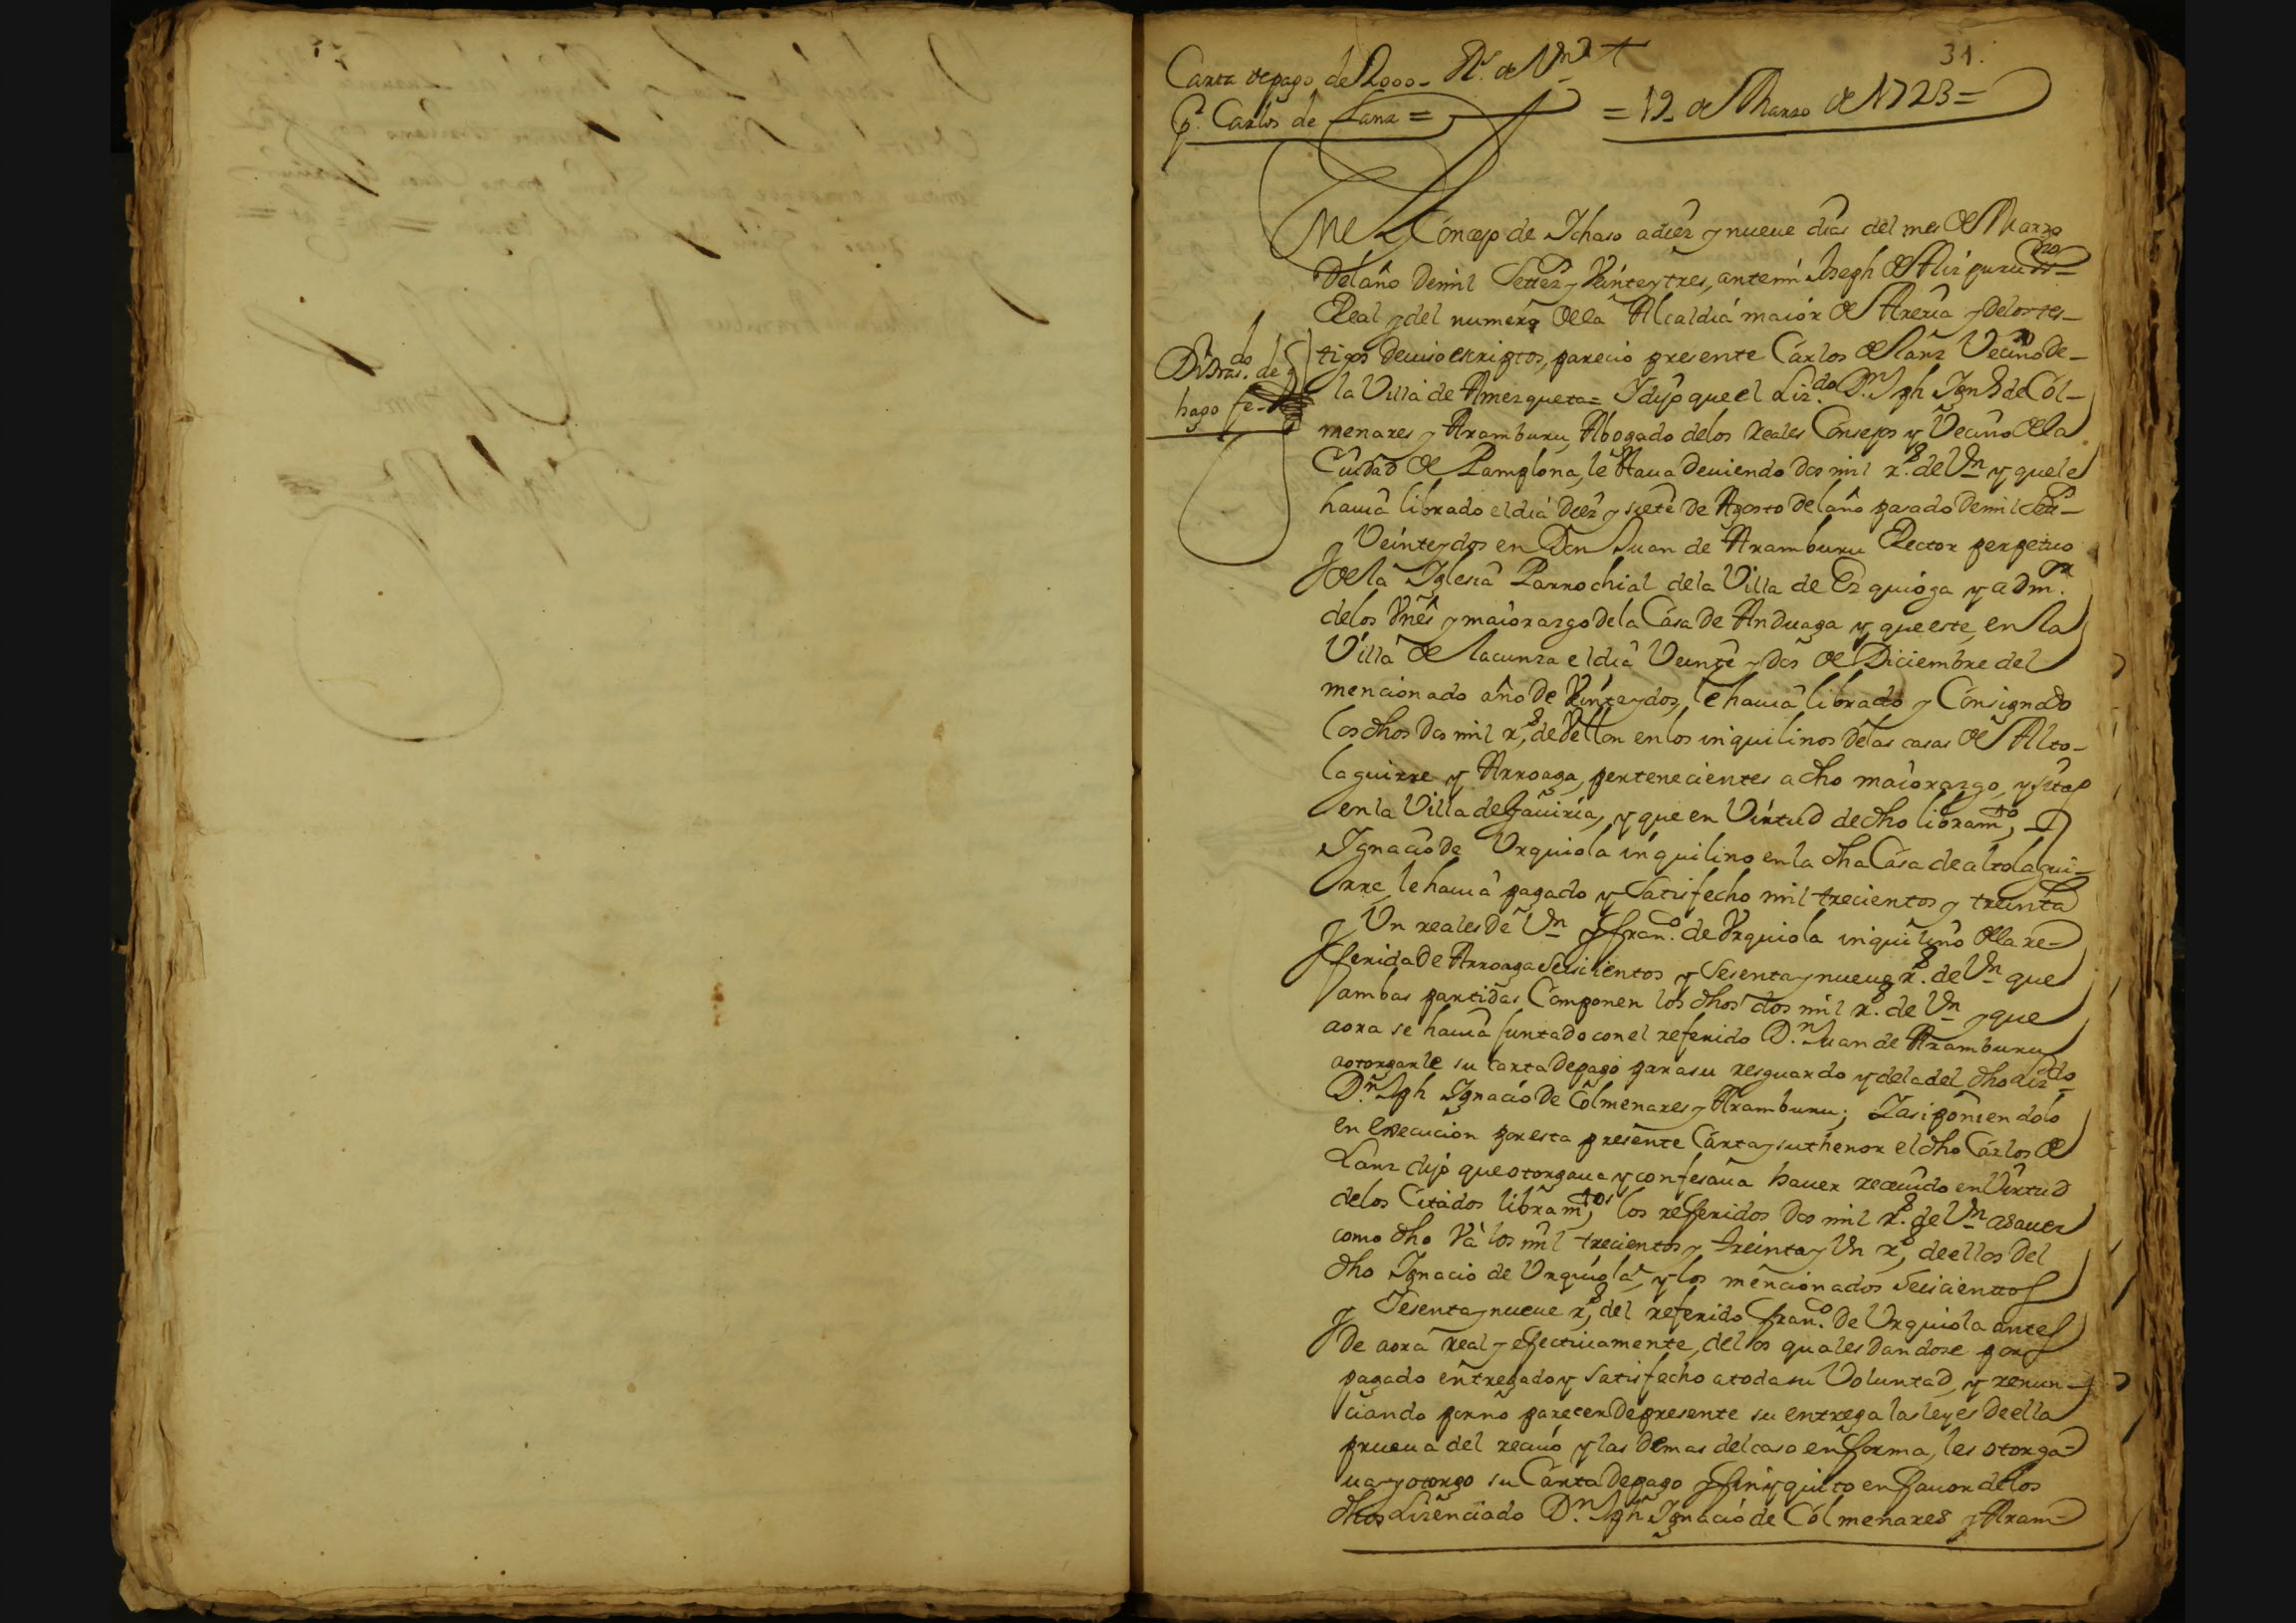 31.
Carta de pago de 2000 Rs. de Vn.
Pr. Carlos de Lanz =
= 19 de Marzo de 1723 =
En el Concejo de Ichaso a diez y nueue dias del mes de Marzo
del año de mil Settez. y Veinte y tres, ante mi Joseph de Alizpuru ssno.
Real y del numero de la Alcaldia maior de Areria y de los tes-
tigos deuiso escriptos, parecio presente Carlos de Lanz Vecino de
la Villa de Amezqueta = I dijo que el Liz.do D.n Jph Ign.o de Col-
menares y Aramburu, Abogado de los Reales Consejos y Vecino de la
Ciudad de Pamplona, le estaua deuiendo dos mil r.s de Vn y que le
hauia librado el dia diez y siete de Agosto del año pasado de mil Sett.s
y Veinte y dos en Don Juan de Aramburu Rector perpetuo
de la Iglesia Parrochial de la Villa de Ezquioga y adm.or
de los Vnes y maiorazgo de la Casa de Anduaga y que este en la
Villa de Lacunza el dia Veinte y dos de Diciembre del
mencionado año de Veinte y dos, le hauia librado y Consignado
los dhos dos mil r.s de Vellon en los inquilinos de las casas de Alto-
laguirre y Arroaga, pertenecientes a dho maiorazgo, y sitas
en la Villa de Gauiria, y que en Virtud de dho libram.to,
Ignacio de Urquiola inquilino en la dha Casa de altolagui-
rre, le hauia pagado y Satisfecho mil trecientos y treinta
y Un reales de Vn y fran.co de Vrquiola inquilino de la re-
ferida de Arroaga Seiscientos y Sesenta y nueue r.s de Vn que
ambas partidas Componen los dhos dos mil r.s de Vn y que
aora se hauia juntado con el referido D.n Juan de Aramburu
a otorgarle su carta de pago para su resguardo y de la del dho Liz.do
D.n Jph Ignacio de Colmenares y Aramburu; I asi poniendolo
en execucion por esta presente Carta y su thenor el dho Carlos de
Lanz dijo que otorgaua y confesaua hauer receuido en Virtud
de los Citados libram.tos los referidos dos mil r.s de Vn a sauer
como dho Va los mil trecientos y treinta y Vn r.s de ellos del
dho Ignacio de Urquiola, y los mencionados Seiscientos
y Sesenta y nueue r.s del referido fran.co de Urquiola antes
de aora real y efectiuamente, de los quales dandose por
pagado entregado y Satisfecho a toda su Voluntad, y renun-
ciando por no parecer de presente su entrega las leyes de ella
prueua del reciuo y las demas del caso en forma, les otorga-
ua y otorgo su Carta de pago y finiquito en fauor de los
dhos Lizenciado D.n Jph Ignacio de Colmenares y Aram-
hago fe